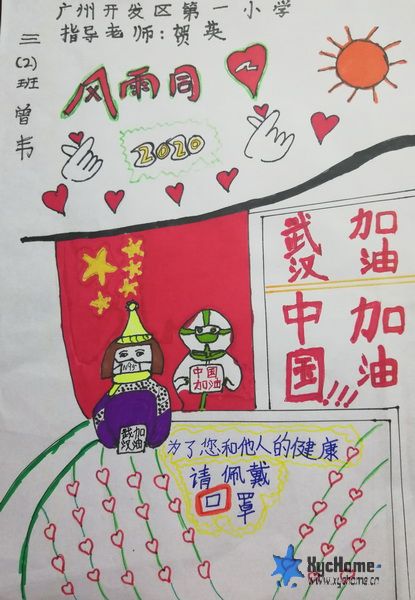 广州开发区第一小学
指导老师：贺英
三(2)班曾韦
风雨同心
2020
武汉加油
中国加油!!!
N95
中国
加油
武汉加油
为了您和他人的健康
请佩戴
口罩
XycHome
www.xychome.cn